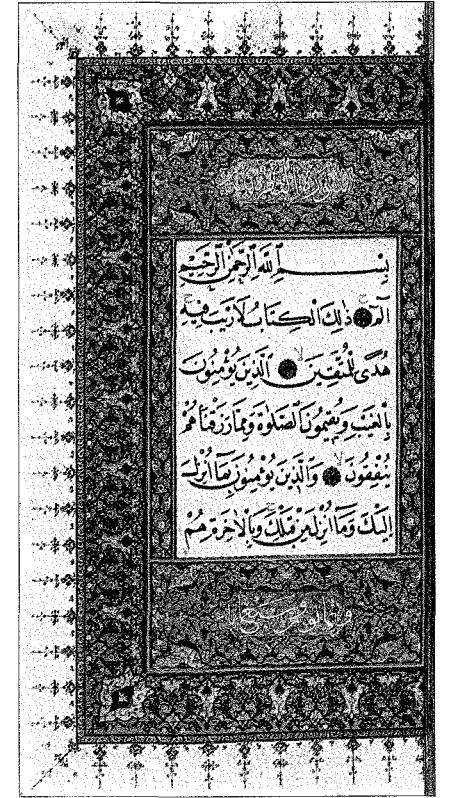 بِسْمِ اللَّهِ الرَّحْمٰنِ الرَّحِيمِ
الٓمٓ ذٰلِكَ الْكِتَابُ لَا رَيْبَ فِيهِ
هُدًى لِلْمُتَّقِينَ الَّذِينَ يُؤْمِنُونَ
بِالْغَيْبِ وَيُقِيمُونَ الصَّلٰوةَ وَمِمَّا رَزَقْنَاهُمْ
يُنْفِقُونَ وَالَّذِينَ يُؤْمِنُونَ بِمَآ اُنْزِلَ
اِلَيْكَ وَمَآ اُنْزِلَ مِنْ قَبْلِكَ وَبِالْاٰخِرَةِ هُمْ